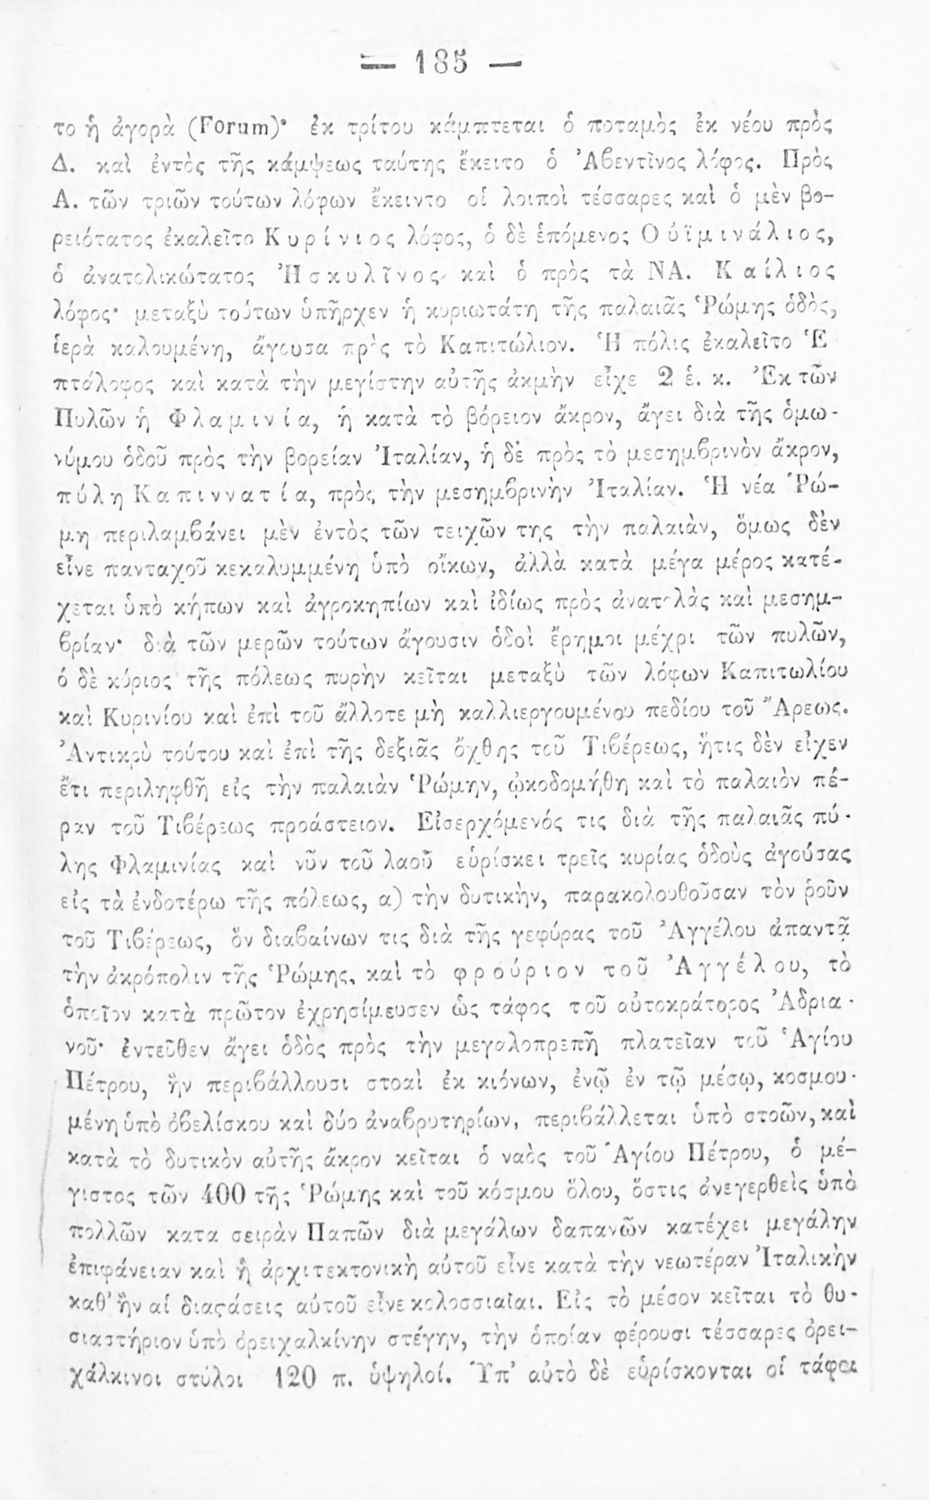 — 185 —
το ἡ ἀγορὰ (Forum)· ἐκ τρίτου κάμπτεται ὁ ποταμὸς ἐκ νέου πρὸς
Δ. καὶ ἐντὸς τῆς κάμψεως ταύτης ἔκειτο ὁ Ἀβεντῖνος λόφος. Πρὸς
Α. τῶν τριῶν τούτων λόφων ἔκειντο οἱ λοιποὶ τέσσαρες καὶ ὁ μὲν βο-
ρειότατος ἐκαλεῖτο Κυρίνιος λόφος, ὁ δὲ ἑπόμενος Οὐϊμινάλιος,
ὁ ἀνατολικώτατος Ἠσκυλῖνος καὶ ὁ πρὸς τὰ ΝΑ. Καίλιος
λόφος· μεταξὺ τούτων ὑπῆρχεν ἡ κυριωτάτη τῆς παλαιᾶς Ῥώμης ὁδὸς,
ἱερὰ καλουμένη, ἄγουσα πρὸς τὸ Καπιτώλιον. Ἡ πόλις ἐκαλεῖτο Ἑ
πτάλοφος καὶ κατὰ τὴν μεγίστην αὐτῆς ἀκμὴν εἶχε 2 ἑ. κ. Ἐκ τῶν
Πυλῶν ἡ Φλαμινία, ἡ κατὰ τὸ βόρειον ἄκρον, ἄγει διὰ τῆς ὁμω-
νύμου ὁδοῦ πρὸς τὴν βορείαν Ἰταλίαν, ἡ δὲ πρὸς τὸ μεσημβρινὸν ἄκρον,
πύλη Καπιννατία, πρὸς τὴν μεσημβρινὴν Ἰταλίαν. Ἡ νέα Ῥώ-
μη περιλαμβάνει μὲν ἐντὸς τῶν τειχῶν της τὴν παλαιὰν, ὅμως δὲν
εἶνε πανταχοῦ κεκαλυμμένη ὑπὸ οἴκων, ἀλλὰ κατὰ μέγα μέρος κατέ-
χεται ὑπὸ κήπων καὶ ἀγροκηπίων καὶ ἰδίως πρὸς ἀνατολὰς καὶ μεσημ-
βρίαν· διὰ τῶν μερῶν τούτων ἄγουσιν ὁδοὶ ἔρημοι μέχρι τῶν πυλῶν,
ὁ δὲ κύριος τῆς πόλεως πυρὴν κεῖται μεταξὺ τῶν λόφων Καπιτωλίου
καὶ Κυρινίου καὶ ἐπὶ τοῦ ἄλλοτε μὴ καλλιεργουμένου πεδίου τοῦ Ἄρεως.
Ἀντικρὺ τούτου καὶ ἐπὶ τῆς δεξιᾶς ὄχθης τοῦ Τιβέρεως, ἥτις δὲν εἶχεν
ἔτι περιληφθῆ εἰς τὴν παλαιὰν Ῥώμην, ᾠκοδομήθη καὶ τὸ παλαιὸν πέ-
ραν τοῦ Τιβέρεως προάστειον. Εἰσερχόμενός τις διὰ τῆς παλαιᾶς πύ-
λης Φλαμινίας καὶ νῦν τοῦ λαοῦ εὑρίσκει τρεῖς κυρίας ὁδοὺς ἀγούσας
εἰς τὰ ἐνδοτέρω τῆς πόλεως, α) τὴν δυτικὴν, παρακολουθοῦσαν τὸν ῥοῦν
τοῦ Τιβέρεως, ὃν διαβαίνων τις διὰ τῆς γεφύρας τοῦ Ἀγγέλου ἀπαντᾷ
τὴν ἀκρόπολιν τῆς Ῥώμης, καὶ τὸ φρούριον τοῦ Ἀγγέλου, τὸ
ὁποῖον κατὰ πρῶτον ἐχρησίμευσεν ὡς τάφος τοῦ αὐτοκράτορος Ἀδρια-
νοῦ· ἐντεῦθεν ἄγει ὁδὸς πρὸς τὴν μεγαλοπρεπῆ πλατεῖαν τοῦ Ἁγίου
Πέτρου, ἣν περιβάλλουσι στοαὶ ἐκ κιόνων, ἐνῷ ἐν τῷ μέσῳ, κοσμου-
μένη ὑπὸ ὀβελίσκου καὶ δύο ἀναβρυτηρίων, περιβάλλεται ὑπὸ στοῶν, καὶ
κατὰ τὸ δυτικὸν αὐτῆς ἄκρον κεῖται ὁ ναὸς τοῦ Ἁγίου Πέτρου, ὁ μέ-
γιστος τῶν 400 τῆς Ῥώμης καὶ τοῦ κόσμου ὅλου, ὅστις ἀνεγερθεὶς ὑπὸ
πολλῶν κατα σειρὰν Παπῶν διὰ μεγάλων δαπανῶν κατέχει μεγάλην
ἐπιφάνειαν καὶ ἡ ἀρχιτεκτονικὴ αὐτοῦ εἶνε κατὰ τὴν νεωτέραν Ἰταλικὴν
καθ' ἣν αἱ διαςάσεις αὐτοῦ εἶνε κολοσσιαῖαι. Εἰς τὸ μέσον κεῖται τὸ θυ-
σιαστήριον ὑπὸ ὀρειχαλκίνην στέγην, τὴν ὁποίαν φέρουσι τέσσαρες ὀρει-
χάλκινοι στύλοι 120 π. ὑψηλοί. Ὑπ' αὐτὸ δὲ εὑρίσκονται οἱ τάφοι